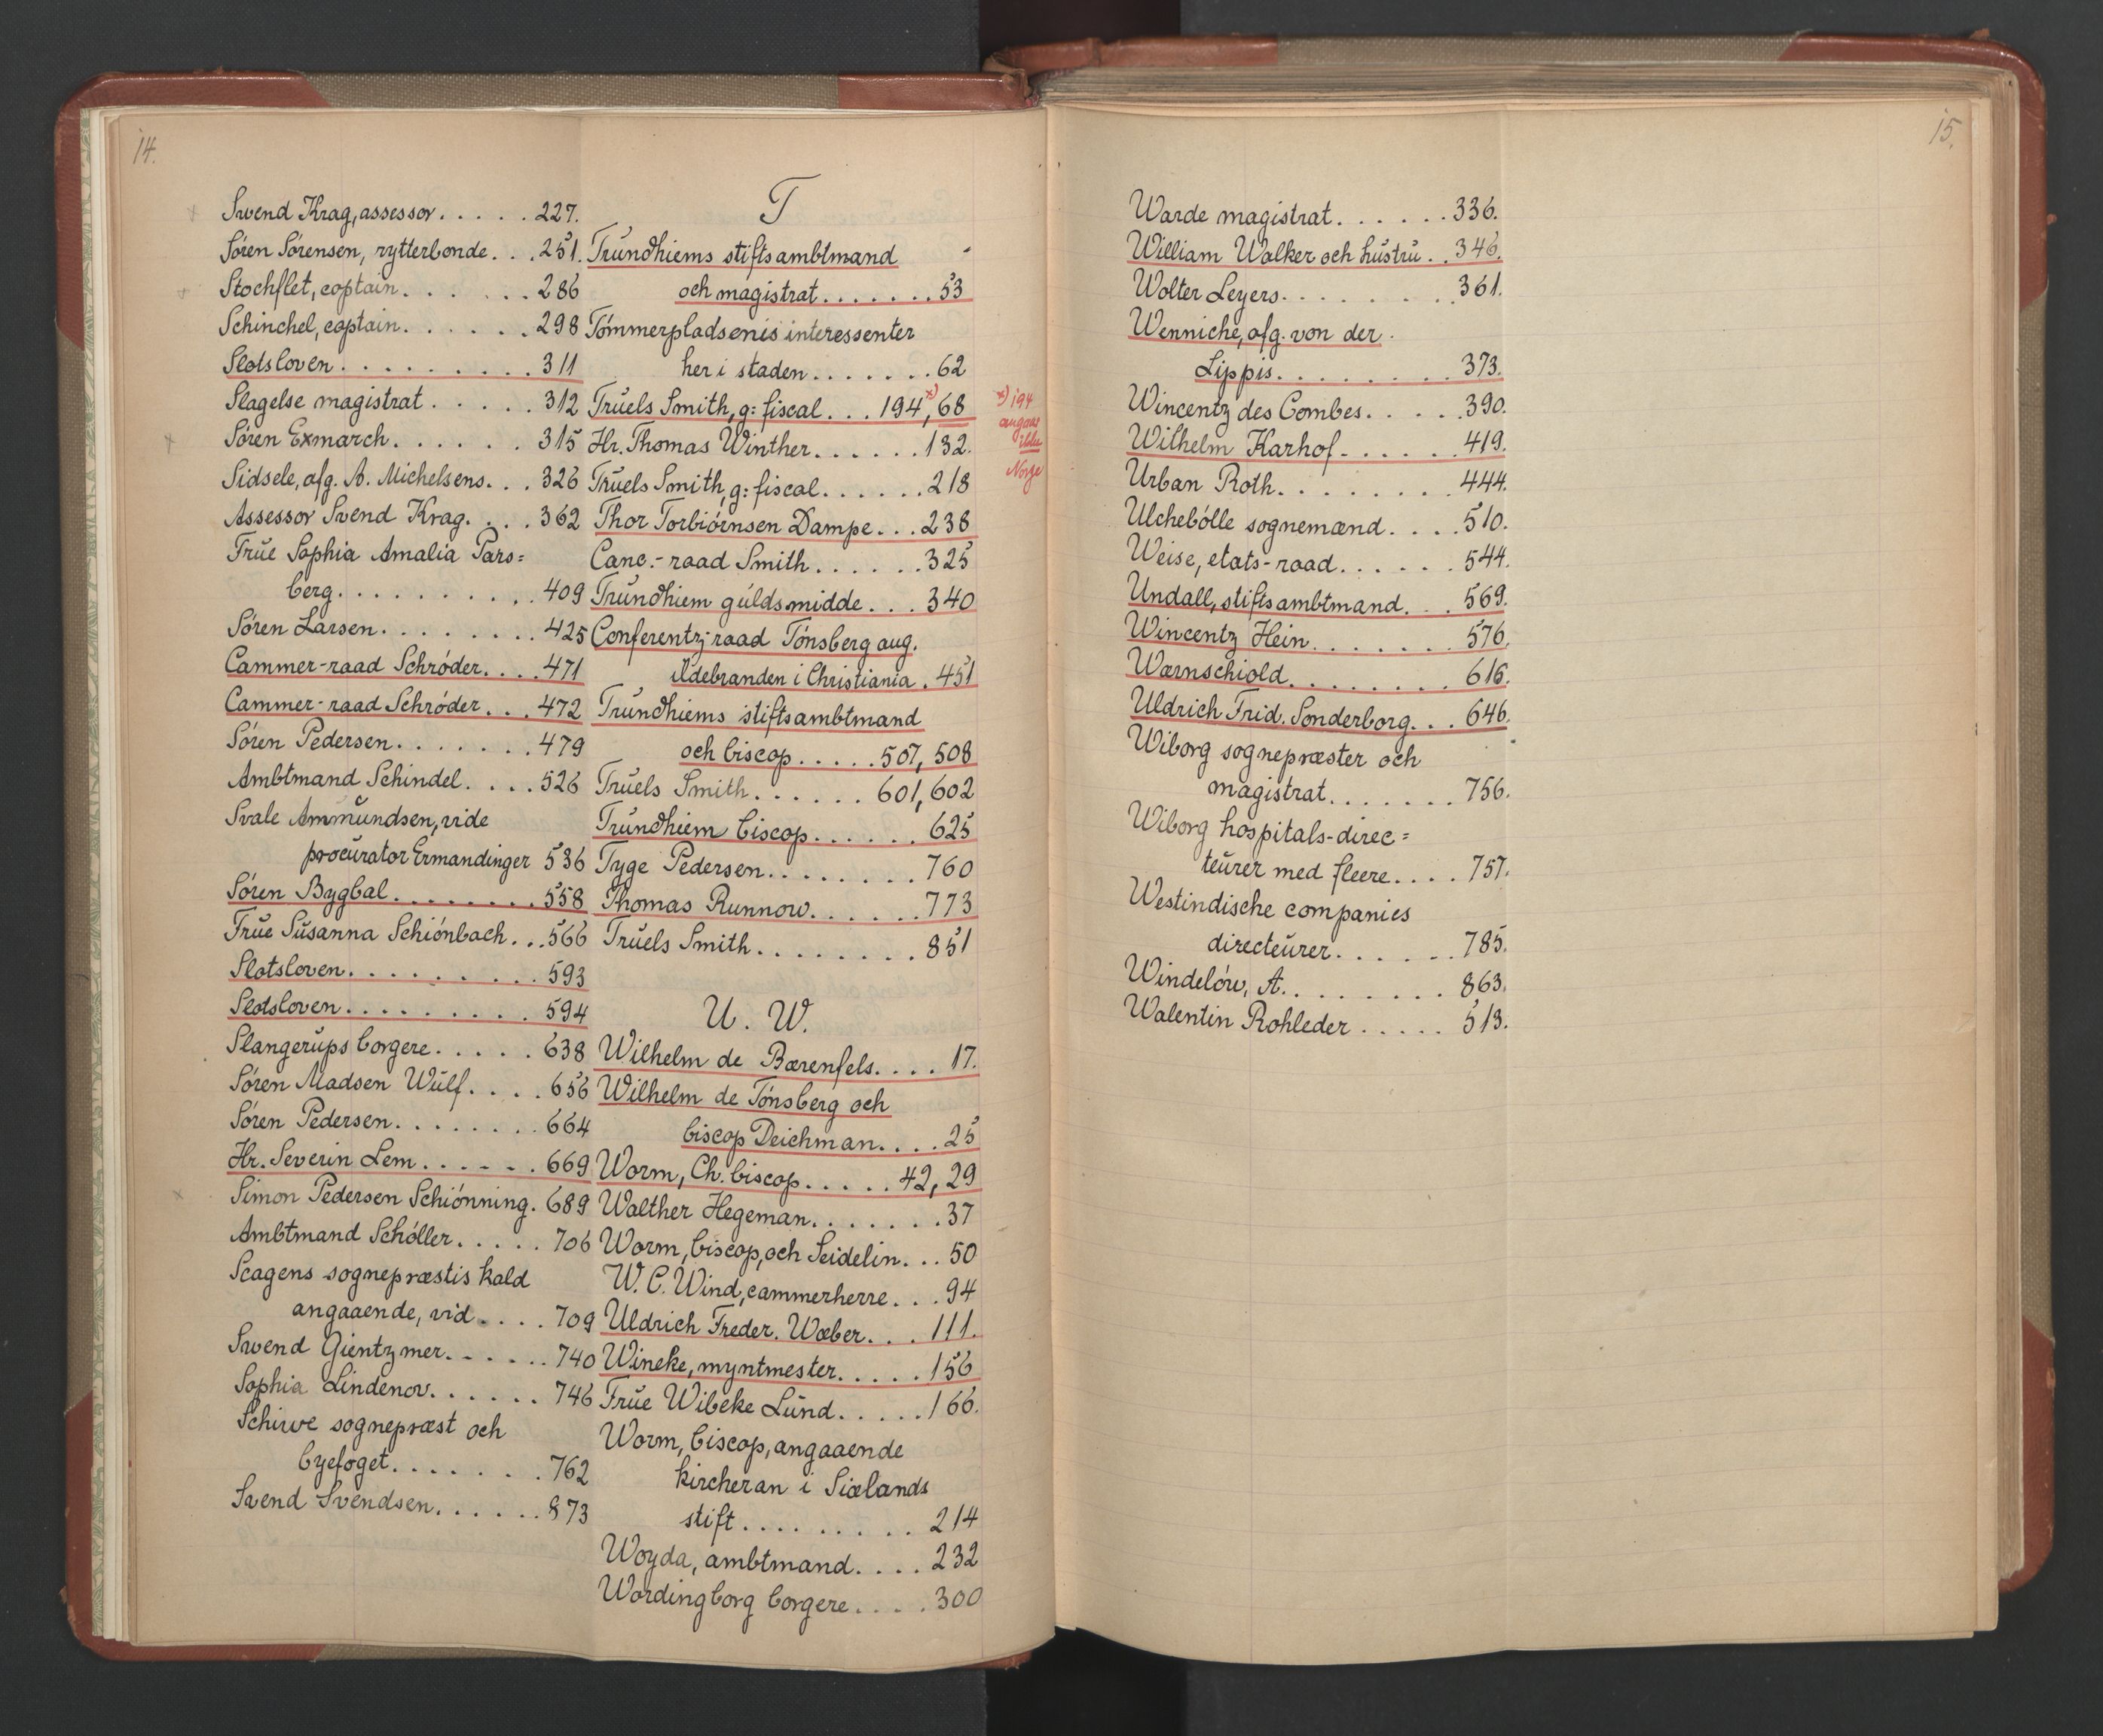 14.
Svend Krag, assessor. . . . . 227.
Sören Sörensen, rytterbonde. . . 251.
Stochflet, captain. . . . . . . 286
Schinchel, captain. . . . . . 298
Slotsloven. . . . . . . . . . 311
Slagelse magistrat. . . . . 312
Sören Exmarch. . . . . . 315
Sidsele, afg. A. Michelsens. . . 326
Assessor Svend Krag. . . . 362
Frŭe Sophia Amalia Pars=
berg. . . . . . . . . . 409
Sören Larsen. . . . . . . . 425
Cammer-raad Schröder. . . . 471
Cammer-raad Schröder. . . 472
Sören Pedersen. . . . . . . 479
Ambtmand Schindel. . . . 526
Svale Ammŭndsen, vide
procŭrator Ermandinger 536
Sören Bygbal. . . . . . . . . 558
Frŭe Sŭsanna Schiönbach. . . 566
Slotsloven. . . . . . . . . 593
Slotsloven. . . . . . . . . 594
Slangerŭps borgere. . . . . 638
Sören Madsen Wŭlf. . . . 656
Sören Pedersen. . . . . . . . 664
Hr. Severin Lem. . . . . . 669
Simon Pedersen Schiönning. 689
Ambtmand Schöller. . . . . 706
Scagens sognepræstis kald
angaaende, vid. . . . 709
Svend Gientzmer. . . . . . 740
Sophia Lindenov. . . . . . 746
Schirve sognepræst och
byefoget. . . . . . . 762
Svend Svendsen. . . . . . 873
T
Trŭndhiems stiftsambtmand
och magistrat. . . . . . . 53
Tömmerpladsenis interessenter
her i staden. . . . . . . 62
Trŭels Smith, g: fiscal. . . 194*), 68
*) 194
angaar
ikke
Norge
Hr. Thomas Winther. . . . . . 132.
Trŭels Smith, g: fiscal. . . . . . 218
Thor Torbiörnsen Dampe. . . 238
Canc.-raad Smith. . . . . . 325
Trŭndhiem gŭldsmidde. . . 340
Conferentz-raad Tönsberg aug.
ildebranden i Christiania. 451
Trŭndhiems stiftsambtmand
och biscop. . . . . 507, 508
Trŭels Smith. . . . . . 601, 602
Trŭndhiem biscop. . . . . . 625
Tyge Pedersen. . . . . . . . 760
Thomas Runnow. . . . . . 773
Trŭels Smith. . . . . . . . 851
U. W.
Wilhelm de Bærenfels. . . . 17.
Wilhelm de Tönsberg och
biscop Deichman. . . . 25
Worm, Ch. biscop. . . . . 42, 29
Walther Hegeman. . . . . . . 37
Worm, biscop, och Seidelin. . . 50
W. C. Wind, cammerherre. . . 94
Uldrich Freder. Wæber. . . 111.
Wineke, myntmester. . . . . 156
Frŭe Wibeke Lŭnd. . . . . 166.
Worm, biscop, angaaende
kircheran i Siælands
stift. . . . . . . . . . 214
Woyda, ambtmand. . . . 232
Wordingborg borgere. . . . 300
15.
Warde magistrat. . . . . . 336.
William Walker och hŭstrŭ. . 346.
Wolter Leyers. . . . . . . . 361.
Wenniche, afg. von der
Lippis. . . . . . . . 373.
Wincentz des Combes. . . . . 390.
Wilhelm Karhof. . . . . . 419.
Urban Roth. . . . . . . . 444.
Ulchebölle sognemænd. . . . 510.
Weise, etats-raad. . . . . . 544.
Undall, stiftsambtmand. . . 569.
Wincentz Hein. . . . . . . 576.
Wærnschiold. . . . . . . . 616.
Uldrich Frid. Sonderborg. . . 646.
Wiborg sognepræster och
magistrat. . . . . . . 756.
Wiborg hospitals-direc=
teŭrer med fleere. . . . 757.
Westindische companies
directeŭrer. . . . . . 785.
Windelöw, A. . . . . . . . 863.
Walentin Rohleder. . . . . 513.